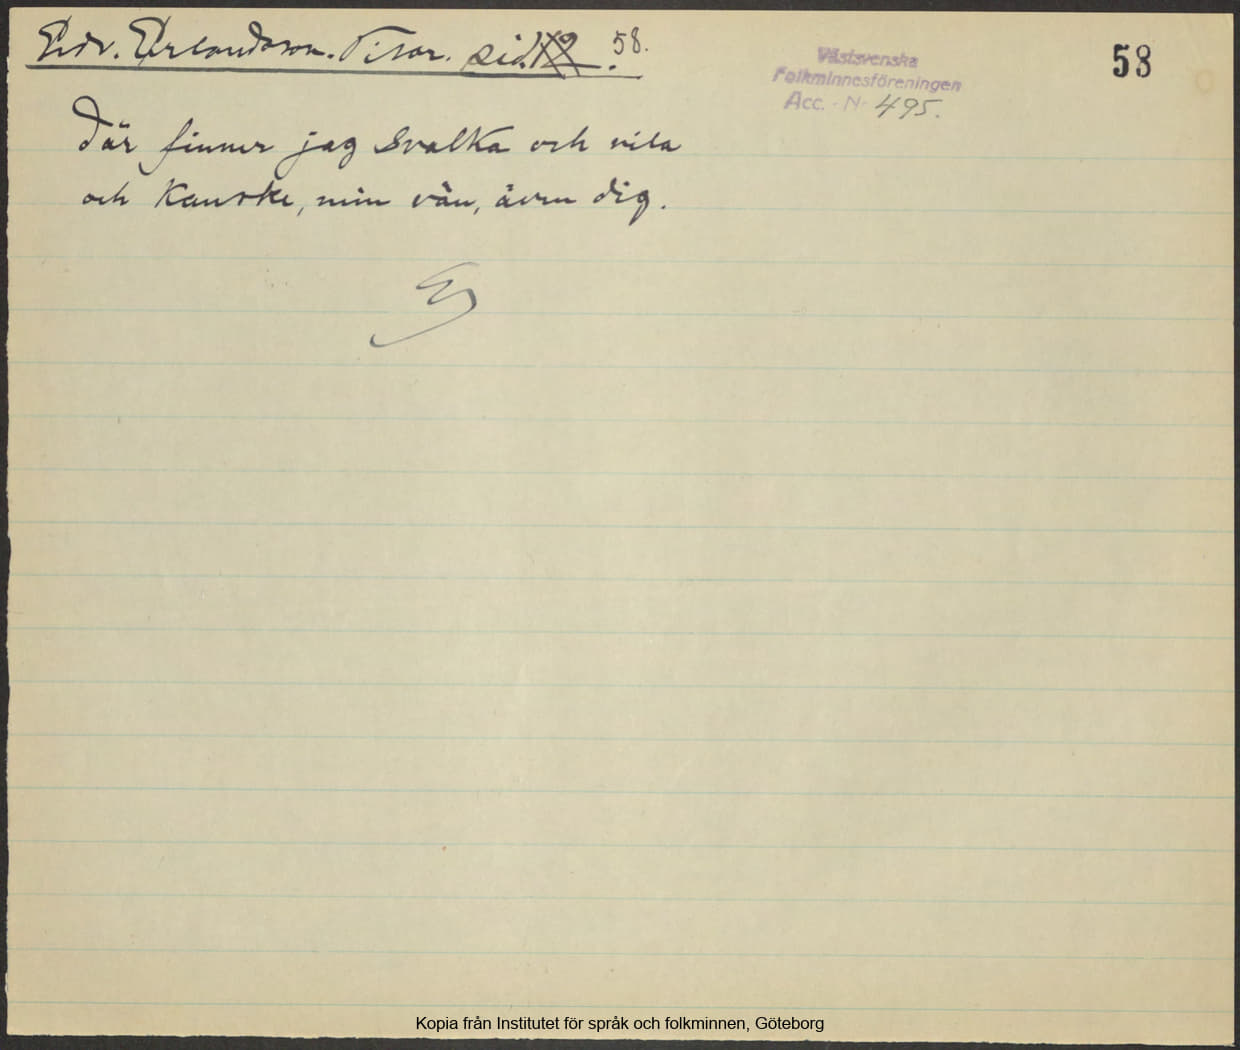 Edv. Erlandsson. Visor. sid. 58.
58
Västsvenska
Folkminnesföreningen
Acc. N. 495.
Där finner jag svalka och vila
och kanske, min vän, även dig.
Kopia från Institutet för språk och folkminnen, Göteborg